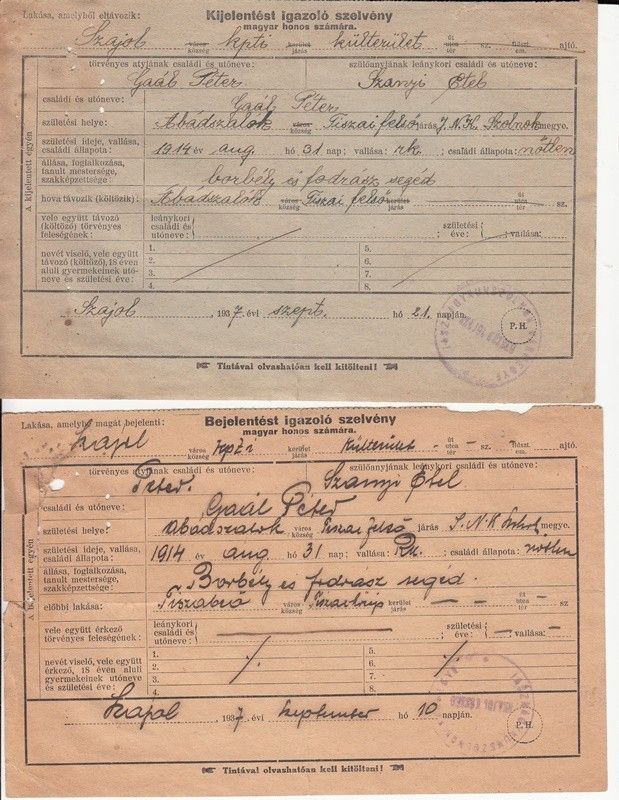 Kijelentést igazoló szelvény
magyar honos számára.
Lakása, amelyből eltávozik:
Szajol város község kpti kerület járás külterület út utca tér sz. ajtó.
törvényes atyjának családi és utóneve: szülőanyjának leánykori családi és utóneve:
Gaál Péter Szanyi Etel
családi és utóneve: Gaál Péter
születési helye: Abádszalók város község Tiszai felső járás J. N. K. Szolnok megye.
születési ideje, vallása, családi állapota: 1914 év aug hó 31 nap; vallása: rk. családi állapota: nőtlen
állása, foglalkozása, tanult mestersége, szakképzettsége: borbély és fodrász segéd
hova távozik (költözik): Abádszalók város község Tiszai felső kerület járás út utca tér sz.
vele együtt távozó (költöző) törvényes feleségének: leánykori családi és utóneve: születési éve: vallása:
nevét viselő, vele együtt távozó (költöző), 18 éven aluli gyermekeinek utóneve és születési éve:
1. 5.
2. 6.
3. 7.
4. 8.
A kijelentett egyén
Szajol, 1937 évi szept. hó 21 napján.
P. H.
Tintával olvashatóan kell kitölteni!
Bejelentést igazoló szelvény
magyar honos számára.
Lakása, amelybe magát bejelenti:
Szajol város község kerület járás külterület út utca tér — sz. ajtó.
törvényes atyjának családi és utóneve: szülőanyjának leánykori családi és utóneve:
Péter. Szanyi Etel
családi és utóneve: Gaál Péter
születési helye: Abádszalok város község Tiszai felső járás J. N. K. megye.
születési ideje, vallása, családi állapota: 1914 év aug hó 31 nap; vallása: Rk. családi állapota: nőtlen
állása, foglalkozása, tanult mestersége, szakképzettsége: Borbély és fodrász segéd.
előbbi lakása: város község kerület járás — — út utca tér — sz
vele együtt érkező törvényes feleségének: leánykori családi és utóneve: születési éve: — vallása: —
nevét viselő, vele együtt érkező, 18 éven aluli gyermekeinek utóneve és születési éve:
1. 5.
2. 6.
3. 7.
4. 8.
A bejelentett egyén
Szajol, 1937 évi september hó 10 napján.
P. H.
Tintával olvashatóan kell kitölteni!